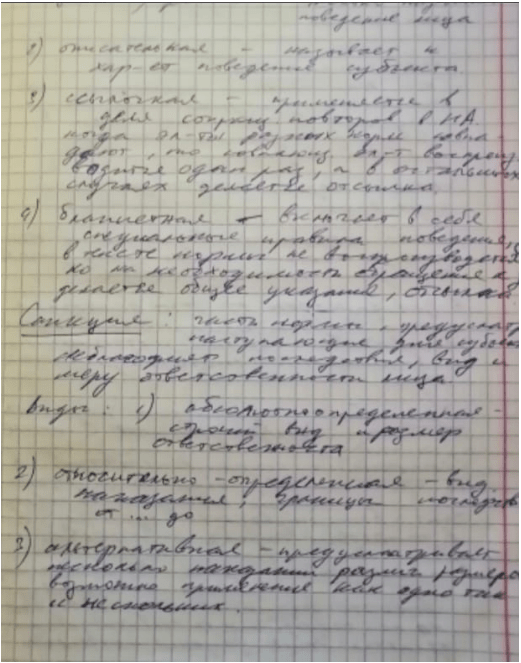 поведение лица
2) описательная - называет и
хар-ет поведение субъекта
3) ссылочная - применяется в
целях сокращ. повторов в НА.
когда эл-ты разных норм совпа-
дают, то совпающ. эл-т воспроиз
водится один раз, а в остальных
случаях делается отсылка.
4) бланкетная - включает в себя
специальные правила поведения,
в тексте нормы не воспроизводятся
ко на необходимость обращения к
делается общее указание, отсылка
Санкция: часть нормы, предусматр
наступающие для субъект
неблагоприят последствия, вид и
меру ответственности лица
Виды: 1) абсолютноопределенная -
строгий вид и размер
ответственности
2) относительно-определенная - вид
наказания, границы последств
от ... до
3) альтернативная - предусматривает
несколько наказаний различ размеров
возможно применение как одно так
и нескольких.